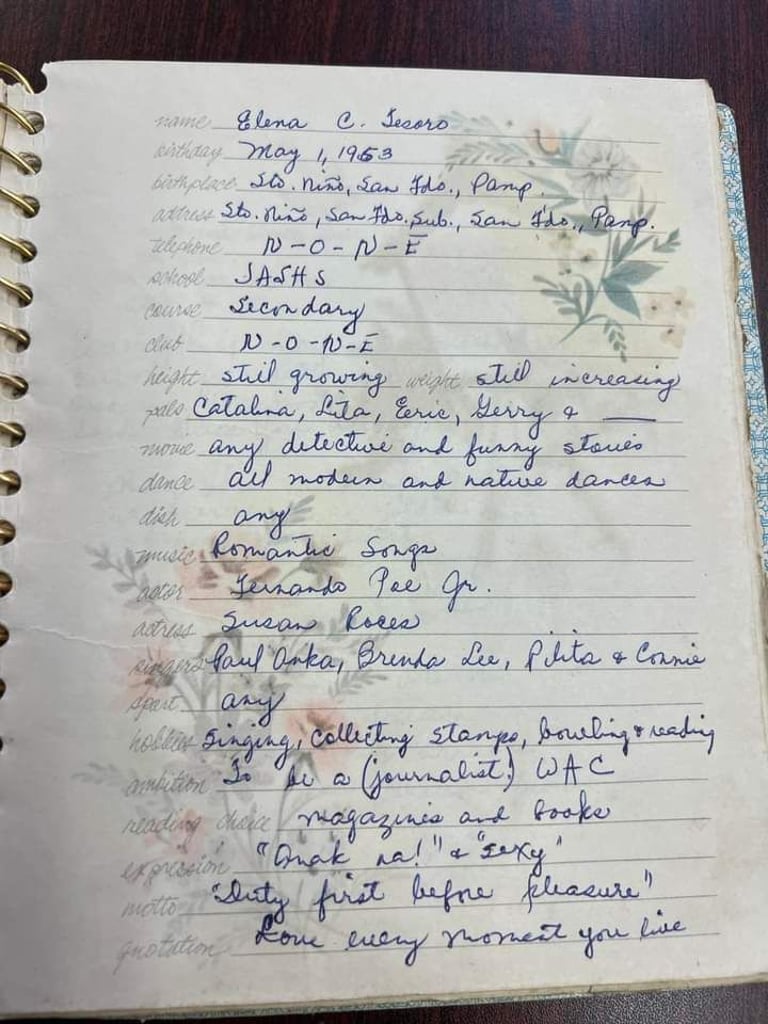 name Elena C. Tesoro
birthday May 1, 1953
birthplace Sto. Niño, San Fdo., Pamp.
address Sto. Niño, San Fdo. Sub., San Fdo., Pamp.
telephone N-O-N-E
school JASHS
course Secondary
club N-O-N-E
height still growing weight still increasing
pals Catalina, Lita, Eeric, Gerry & ___
movie any detective and funny stories
dance all modern and native dances
dish any
music Romantic Songs
actor Fernando Poe Jr.
actress Susan Roces
singers Paul Anka, Brenda Lee, Pilita & Connie
sport any
hobbies singing, collecting stamps, bowling & reading
ambition To be a (journalist) WAC
reading choice magazines and books
expression "Anak na!" & "sexy"
motto "Duty first before pleasure"
quotation Love every moment you live